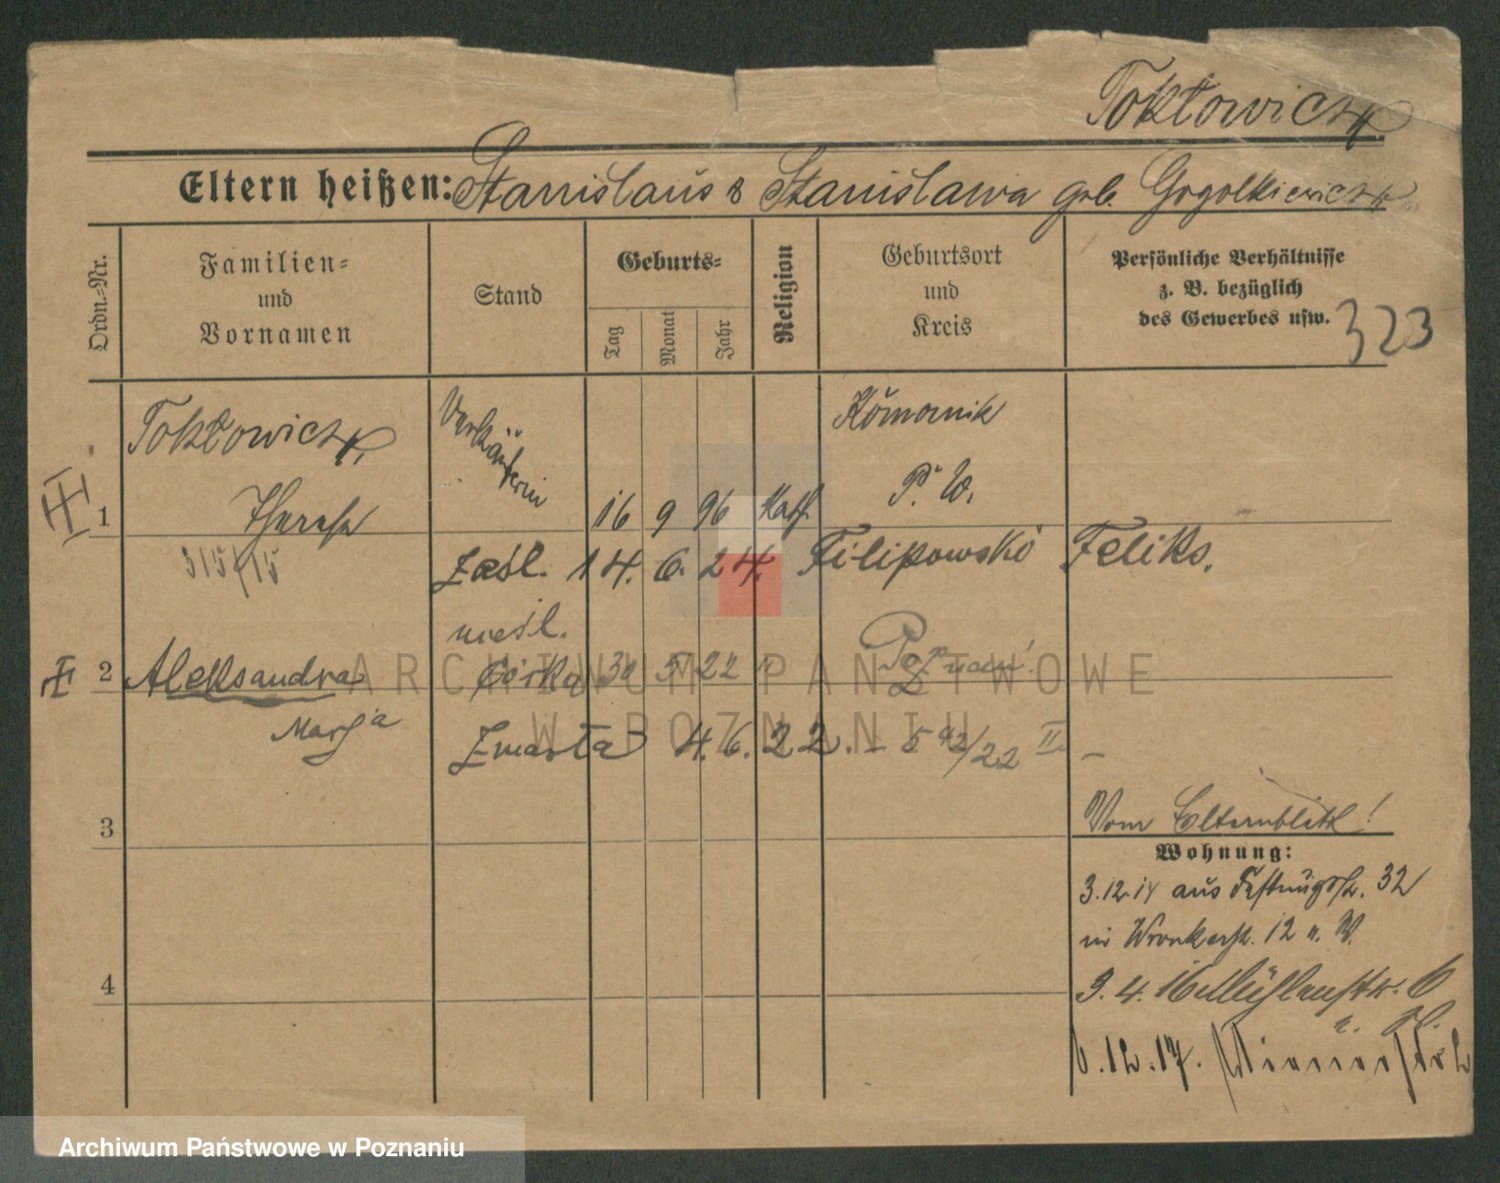 Toktowicz
Eltern heißen: Stanislaus & Stanislawa geb. Gogolkiewicz
Ordn.-Nr.
Familien-
und
Vornamen
Stand
Geburts-
Tag
Monat
Jahr
Religion
Geburtsort
und
Kreis
Persönliche Verhältnisse
z. B. bezüglich
des Gewerbes usw.
323
Toktowicz,
Verkäuferin
Komornik
P. W.
1
Therese
16 9 96 Kath.
315/15
Zaśl. 14. 6. 24. Filipowski Feliks.
nieśl.
2 Aleksandra córka 30 5 22 " Poznań
Marja
Zmarła 4. 6. 22. – 542/22 II. –
3
Vom Elternblatt!
Wohnung:
3.12.14 aus Festungsstr. 32
in Wronkerstr. 12 n. W.
4
3. 4. 16 Mühlenstr. 6
6.12.17.
ARCHIWUM PAŃSTWOWE
W POZNANIU
Archiwum Państwowe w Poznaniu